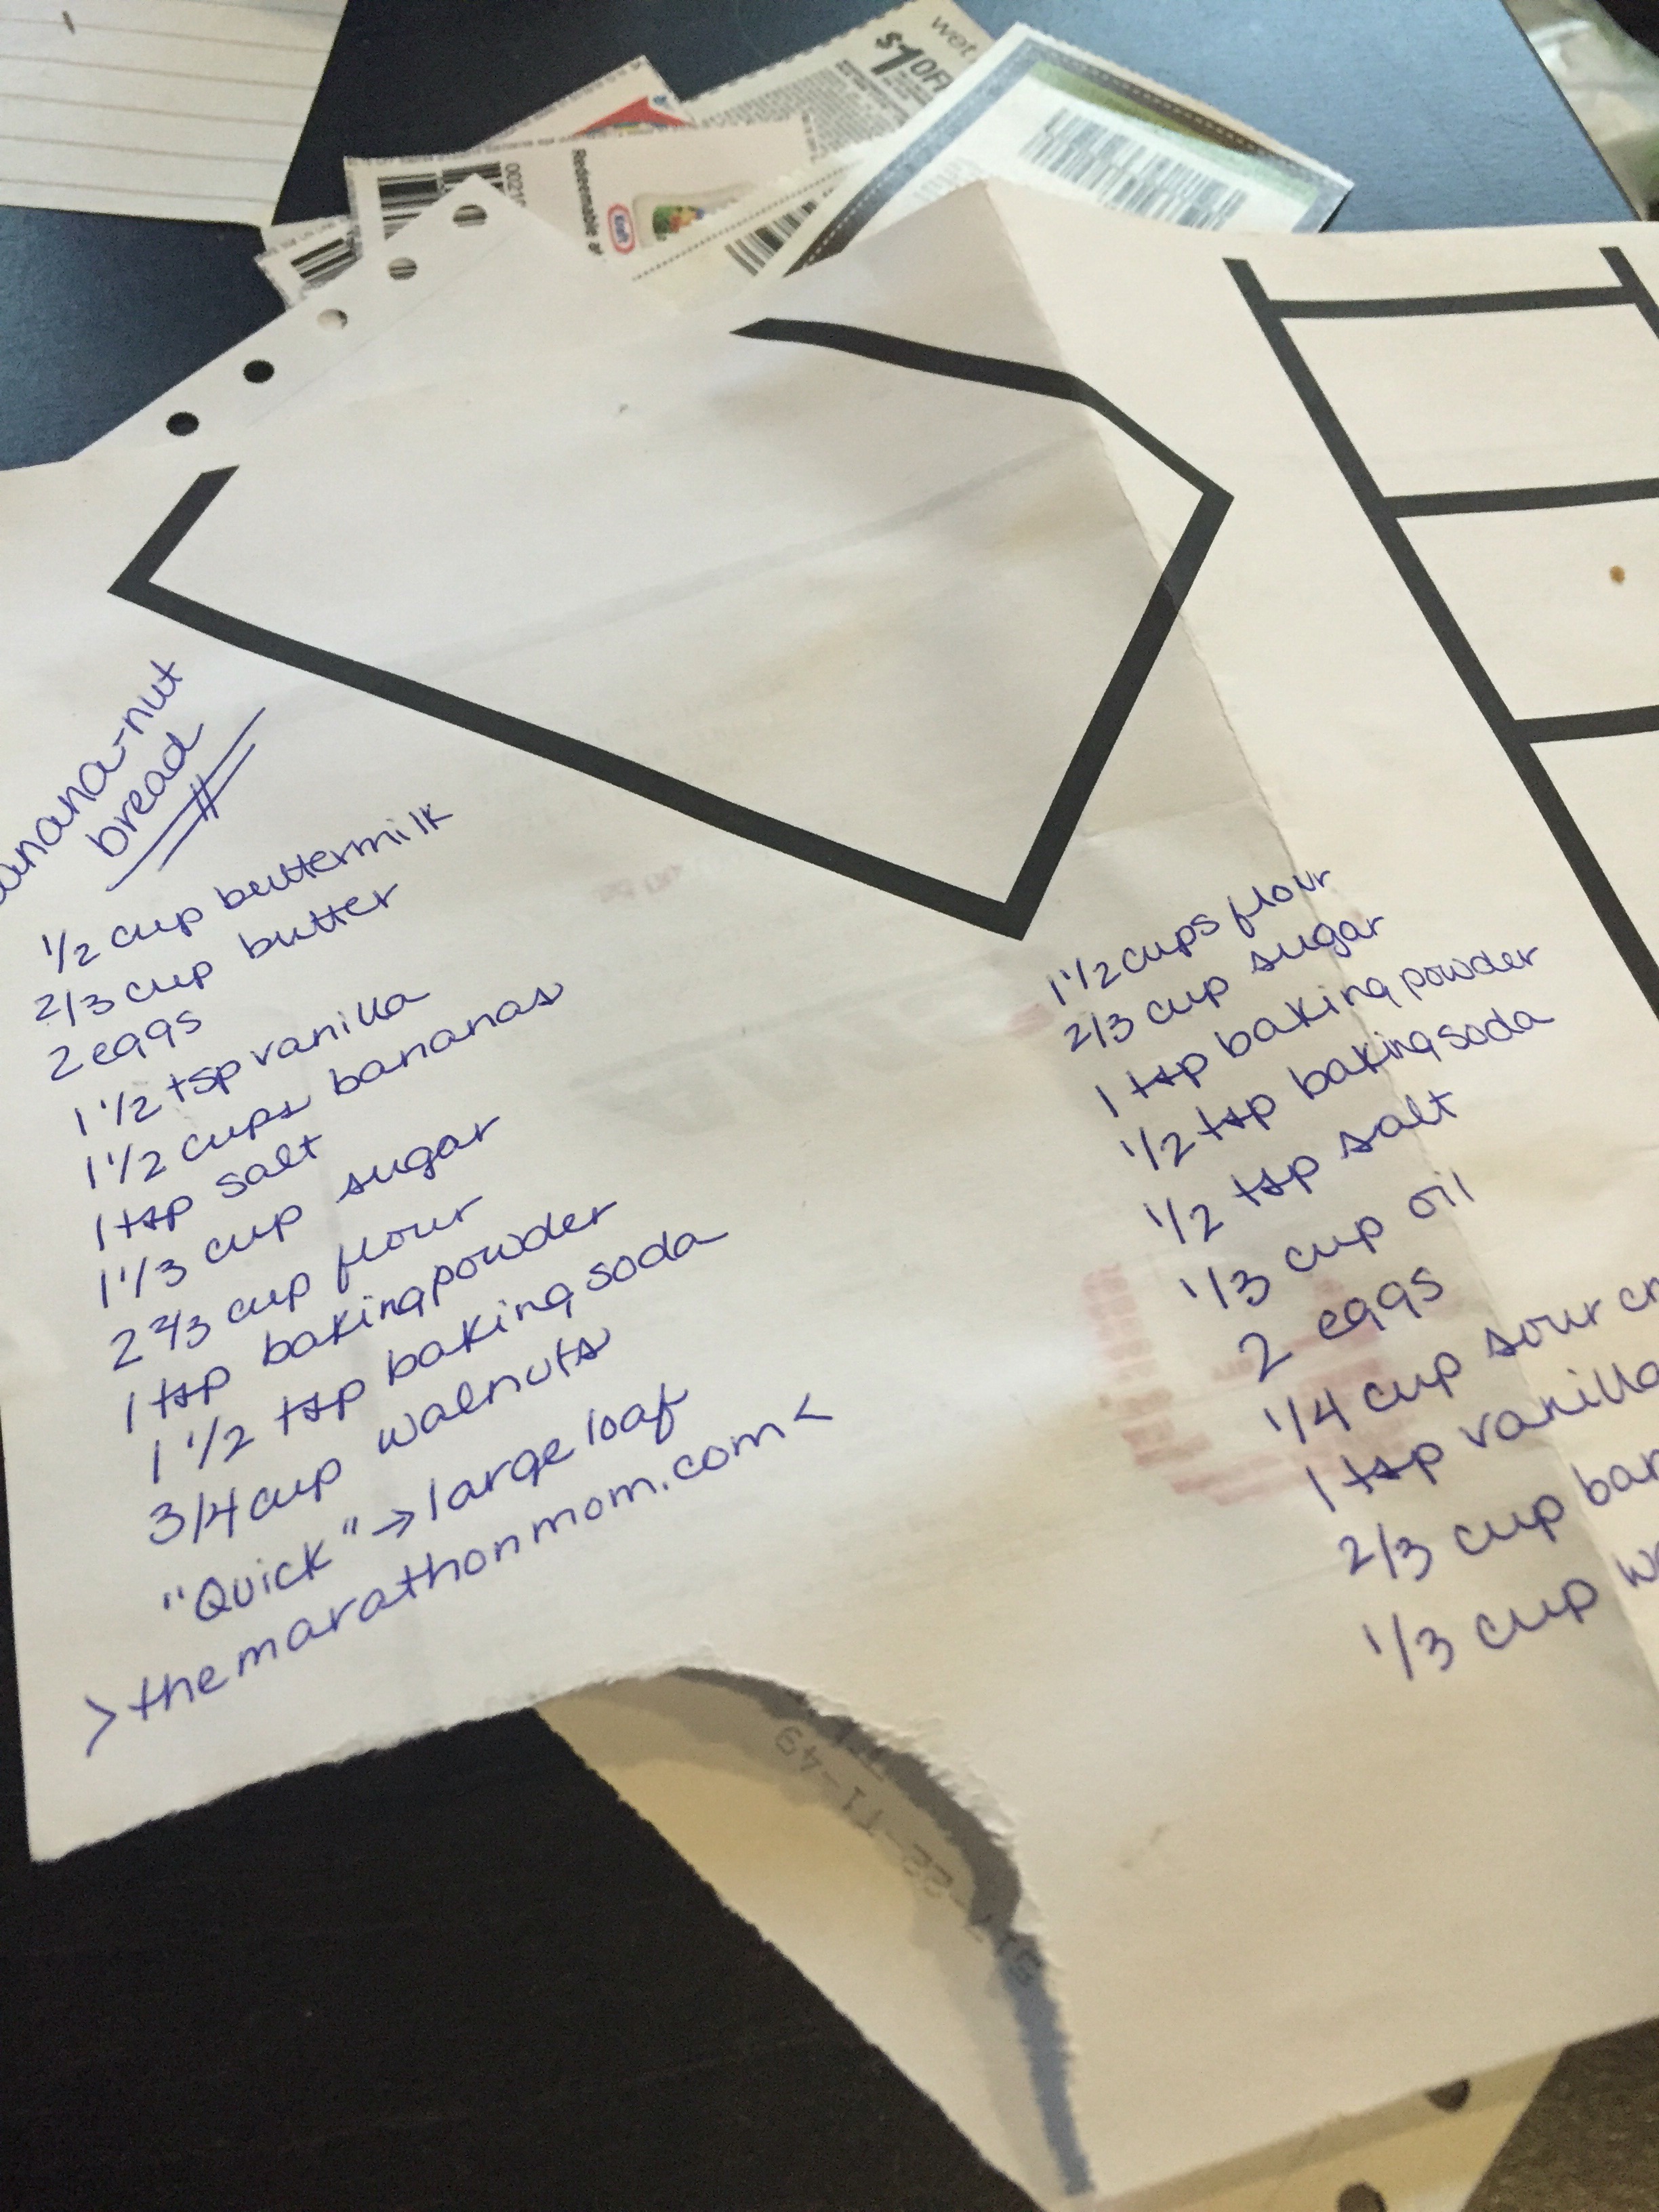 wet
$1 OFF
Redeemable at
Kraft
banana-nut
bread
1/2 cup buttermilk
2/3 cup butter
2 eggs
1 1/2 tsp vanilla
1 1/2 cups bananas
1 tsp salt
1 1/3 cup sugar
2 2/3 cup flour
1 tsp baking powder
1 1/2 tsp baking soda
3/4 cup walnuts
"Quick" → large loaf
> themarathonmom.com <
1 1/2 cups flour
2/3 cup sugar
1 tsp baking powder
1/2 tsp baking soda
1/2 tsp salt
1/3 cup oil
2 eggs
1/4 cup sour cr
1 tsp vanilla
2/3 cup ban
1/3 cup wa